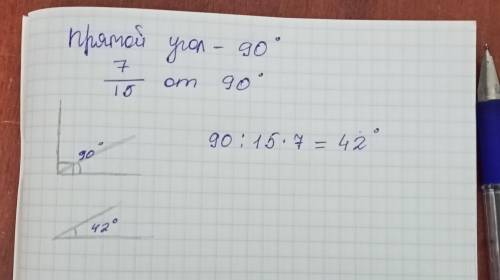 Прямой угол - 90°
7/15 от 90°
90°
90 : 15 · 7 = 42°
42°